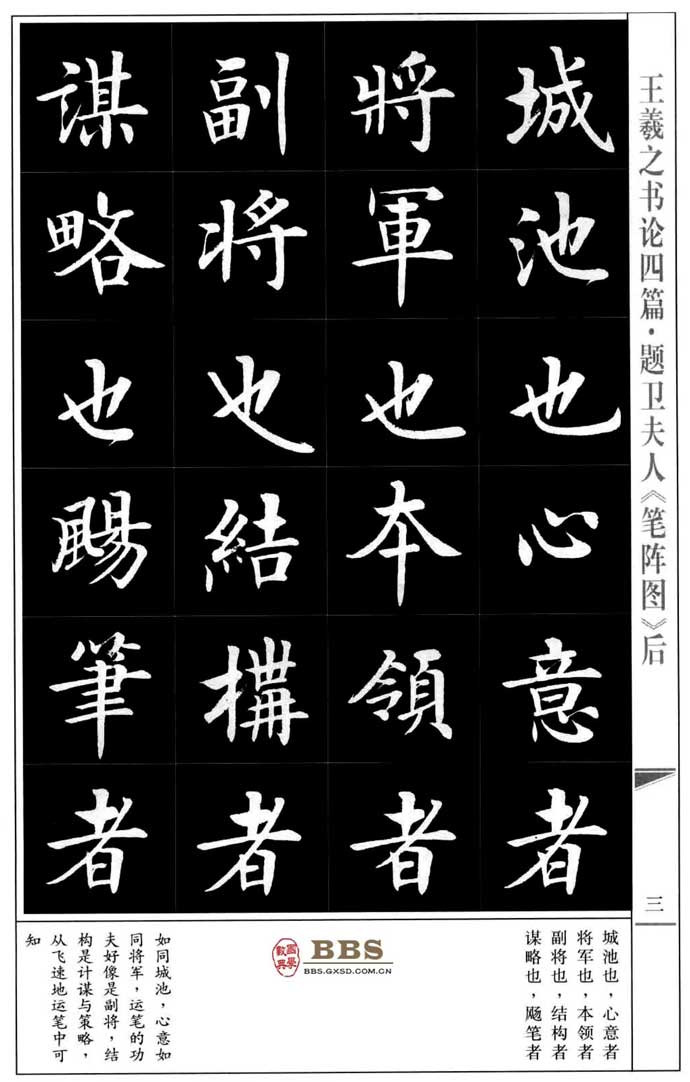 王羲之书论四篇·题卫夫人《笔阵图》后
三
城池也心意者
將軍也本領者
副将也結構者
謀略也颺筆者
城池也，心意者
将军也，本领者
副将也，结构者
谋略也，飏笔者
BBS
BBS.GXSD.COM.CN
如同城池，心意如
同将军，运笔的功
夫好像是副将，结
构是计谋与策略，
从飞速地运笔中可
知